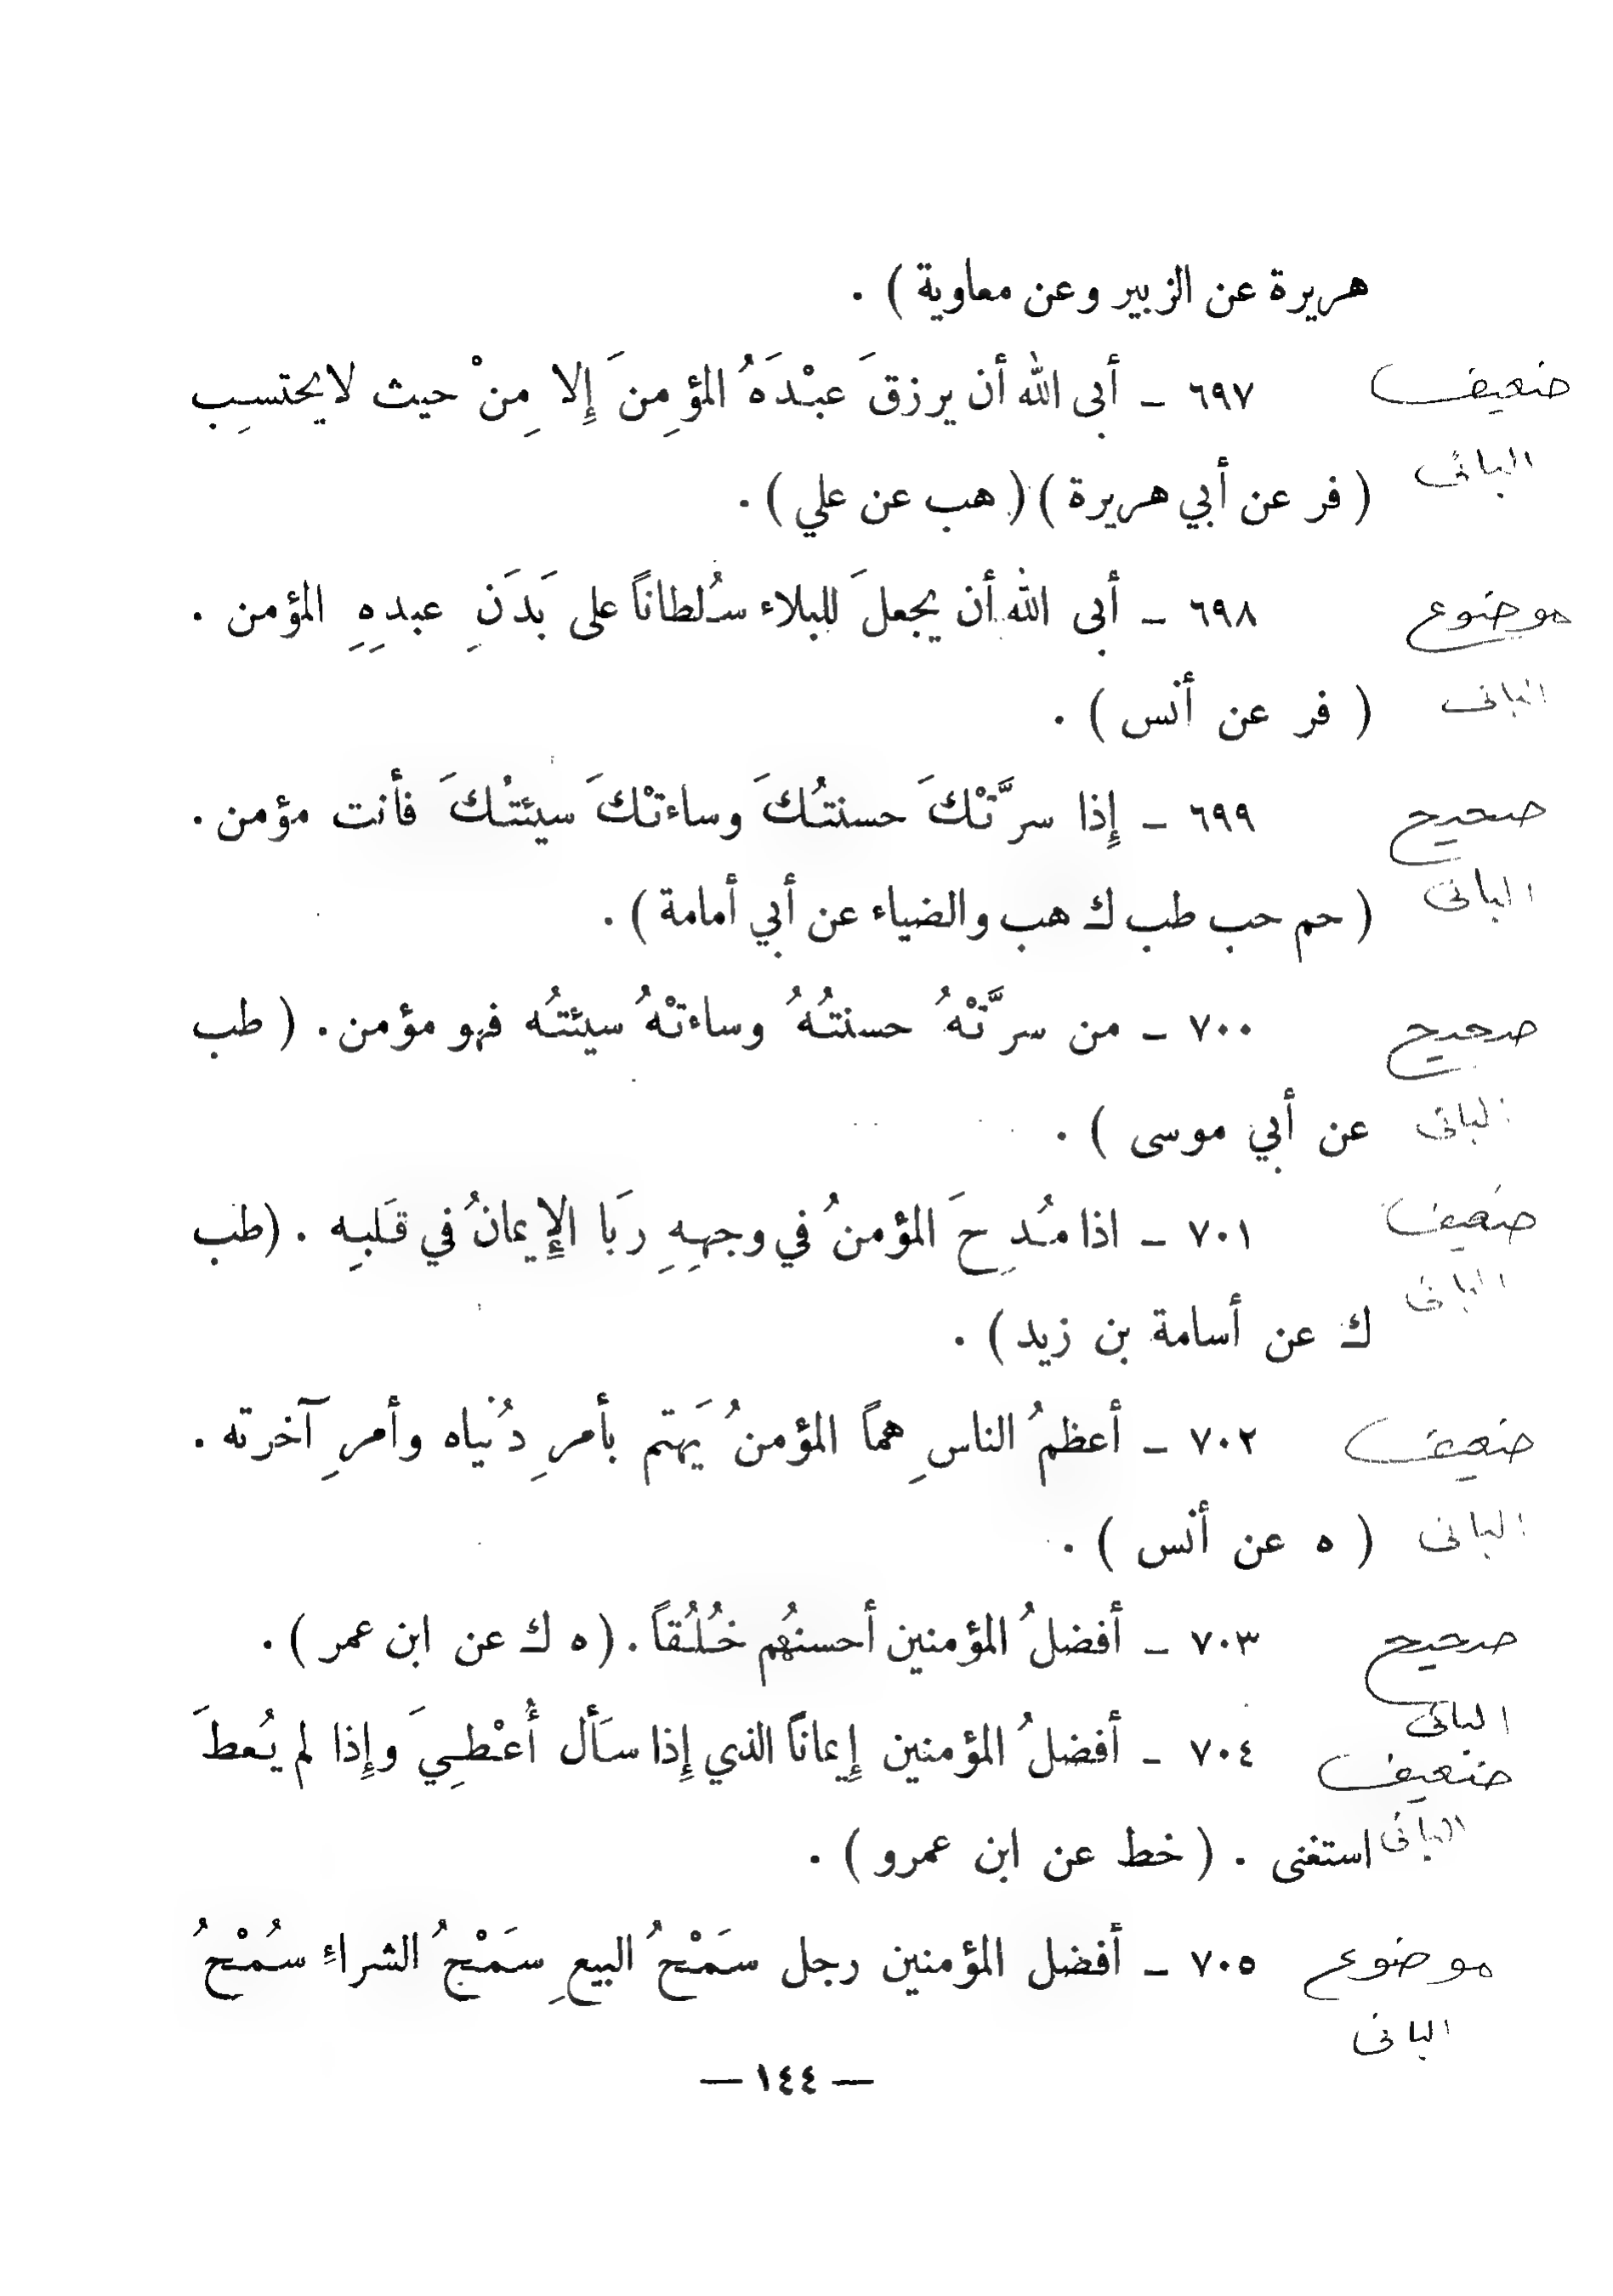 هريرة عن الزبير وعن معاوية ) .
ضعيف ٦٩٧ ـ أبى الله أن يرزقَ عبْدَهُ المؤمِنَ إِلا مِنْ حيث لا يحتسِب
البانى ( فر عن أبي هريرة ) ( هب عن علي ) .
موضوع ٦٩٨ ـ أبى الله أن يجعلَ للبلاء سُلطاناً على بَدَنِ عبدِهِ المؤمن .
البانى ( فر عن أنس ) .
صحيح ٦٩٩ ـ إِذا سرَّتْكَ حسنتُكَ وساءتْكَ سيئتُكَ فأنت مؤمن .
البانى ( حم حب طب ك هب والضياء عن أبي أمامة ) .
صحيح ٧٠٠ ـ من سرَّتْهُ حسنتُهُ وساءتْهُ سيئتُه فهو مؤمن . ( طب
البانى عن أبي موسى ) .
ضعيف ٧٠١ ـ اذا مُدِحَ المؤمنُ في وجهِهِ رَبَا الإِيمانُ في قَلبِه . (طب
البانى ك عن أسامة بن زيد ) .
ضعيف ٧٠٢ ـ أعظمُ الناسِ هماً المؤمنُ يَهتم بأمرِ دُنياه وأمرِ آخرته .
البانى ( ه عن أنس ) .
صحيح ٧٠٣ ـ أفضلُ المؤمنين أحسنُهم خُلُقاً . ( ه ك عن ابن عمر ) .
البانى
ضعيف ٧٠٤ ـ أفضلُ المؤمنين إِيماناً الذي إِذا سَأل أُعْطِيَ وإِذا لم يُعطَ
البانى استغنى . ( خط عن ابن عمرو ) .
موضوع ٧٠٥ ـ أفضل المؤمنين رجل سَمْحُ البيعِ سَمْحُ الشراءِ سُمْحُ
البانى
— ١٤٤ —